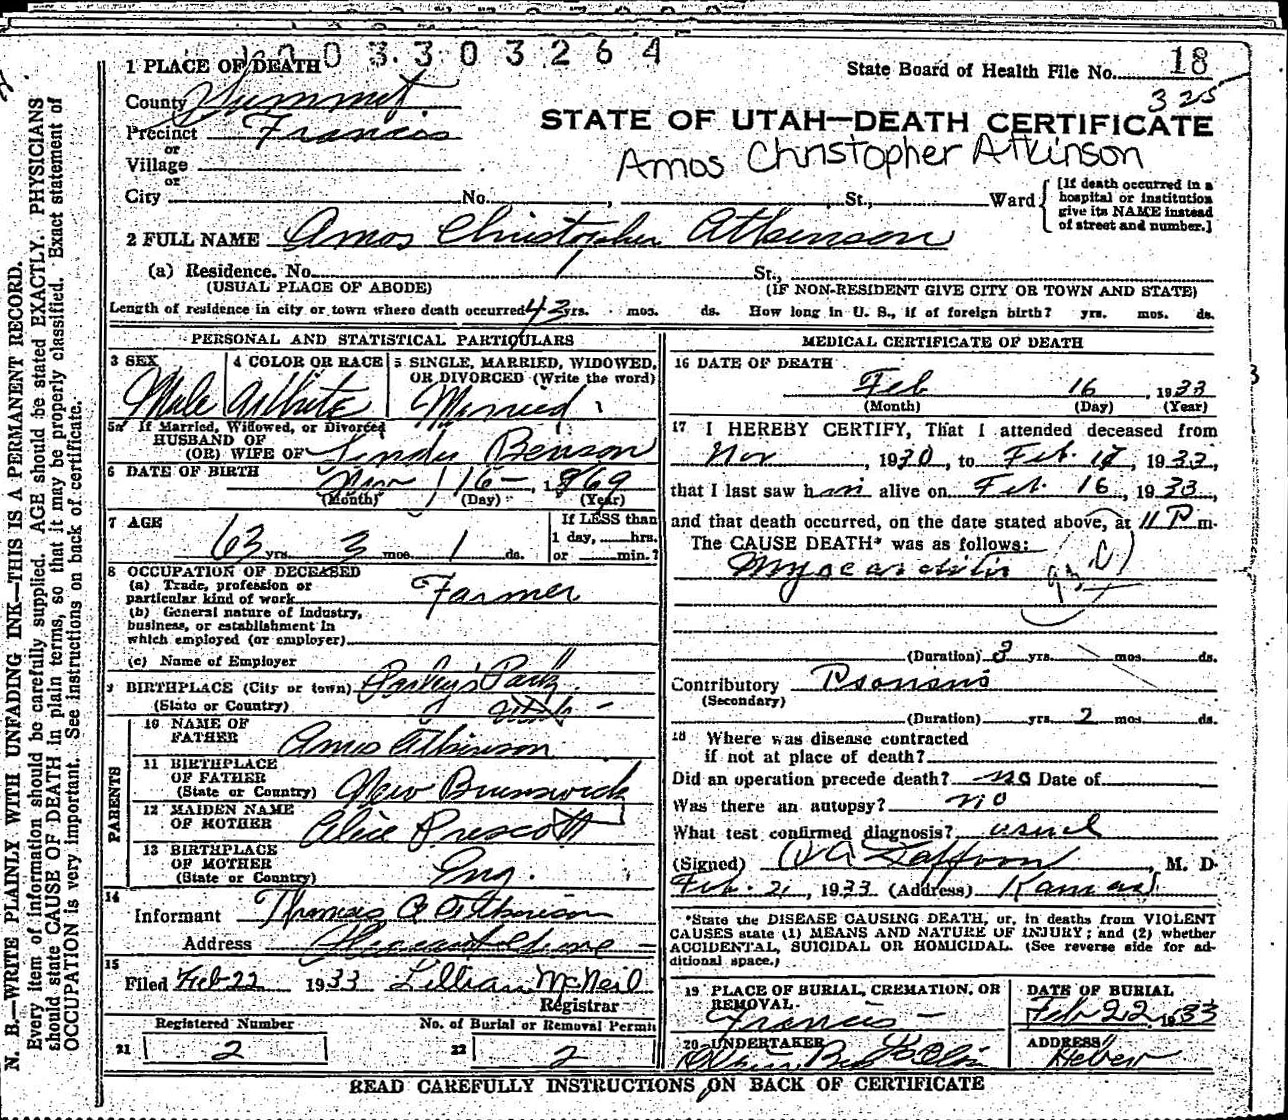 0 0 3 3 0 3 2 6 4
1 PLACE OF DEATH
State Board of Health File No. 18
325
County Summit
STATE OF UTAH—DEATH CERTIFICATE
Precinct Francis
or
Village
Amos Christopher Atkinson
or
City No. , St., Ward
[If death occurred in a hospital or institution give its NAME instead of street and number.]
2 FULL NAME Amos Christopher Atkinson
(a) Residence. No. St.,
(USUAL PLACE OF ABODE) (IF NON-RESIDENT GIVE CITY OR TOWN AND STATE)
Length of residence in city or town where death occurred 43 yrs. mos. ds. How long in U. S., if of foreign birth? yrs. mos. ds.
PERSONAL AND STATISTICAL PARTICULARS
3 SEX
Male
4 COLOR OR RACE
White
5 SINGLE, MARRIED, WIDOWED, OR DIVORCED (Write the word)
Married
5a If Married, Widowed, or Divorced
HUSBAND OF
(OR) WIFE OF Benson
6 DATE OF BIRTH Nov 16 — , 1869
(Month) (Day) (Year)
7 AGE
63 yrs. 3 mos. 1 ds.
If LESS than
1 day, hrs.
or min.?
8 OCCUPATION OF DECEASED
(a) Trade, profession or
particular kind of work Farmer
(b) General nature of industry,
business, or establishment in
which employed (or employer)
(c) Name of Employer
9 BIRTHPLACE (City or town) Parley's Park
(State or Country) Utah
PARENTS
10 NAME OF
FATHER Amos Atkinson
11 BIRTHPLACE
OF FATHER
(State or Country) New Brunswick
12 MAIDEN NAME
OF MOTHER Alice Prescott
13 BIRTHPLACE
OF MOTHER
(State or Country) Eng.
14
Informant Thomas Atkinson
Address
15
Filed Feb 22 1933 Lillian McNeil
Registrar
Registered Number No. of Burial or Removal Permit
21 2 22 2
MEDICAL CERTIFICATE OF DEATH
16 DATE OF DEATH
Feb 16 , 1933
(Month) (Day) (Year)
17 I HEREBY CERTIFY, That I attended deceased from
Nov , 1930, to Feb. 17, 1933,
that I last saw him alive on Feb. 16, 1933,
and that death occurred, on the date stated above, at 11 P m.
The CAUSE DEATH* was as follows:
Myocarditis
(Duration) 3 yrs. mos. ds.
Contributory Psoriasis
(Secondary)
(Duration) yrs. 2 mos. ds.
18 Where was disease contracted
if not at place of death?
Did an operation precede death? no Date of
Was there an autopsy? no
What test confirmed diagnosis? usual
(Signed) , M. D.
Feb. 21, 1933 (Address) Kamas
*State the DISEASE CAUSING DEATH, or, in deaths from VIOLENT
CAUSES state (1) MEANS AND NATURE OF INJURY; and (2) whether
ACCIDENTAL, SUICIDAL OR HOMICIDAL. (See reverse side for ad-
ditional space.)
19 PLACE OF BURIAL, CREMATION, OR
REMOVAL
Francis —
DATE OF BURIAL
Feb 22, 1933
20 UNDERTAKER
ADDRESS
Heber
READ CAREFULLY INSTRUCTIONS ON BACK OF CERTIFICATE
N. B.—WRITE PLAINLY WITH UNFADING INK—THIS IS A PERMANENT RECORD.
Every item of information should be carefully supplied. AGE should be stated EXACTLY. PHYSICIANS
should state CAUSE OF DEATH in plain terms, so that it may be properly classified. Exact statement of
OCCUPATION is very important. See instructions on back of certificate.